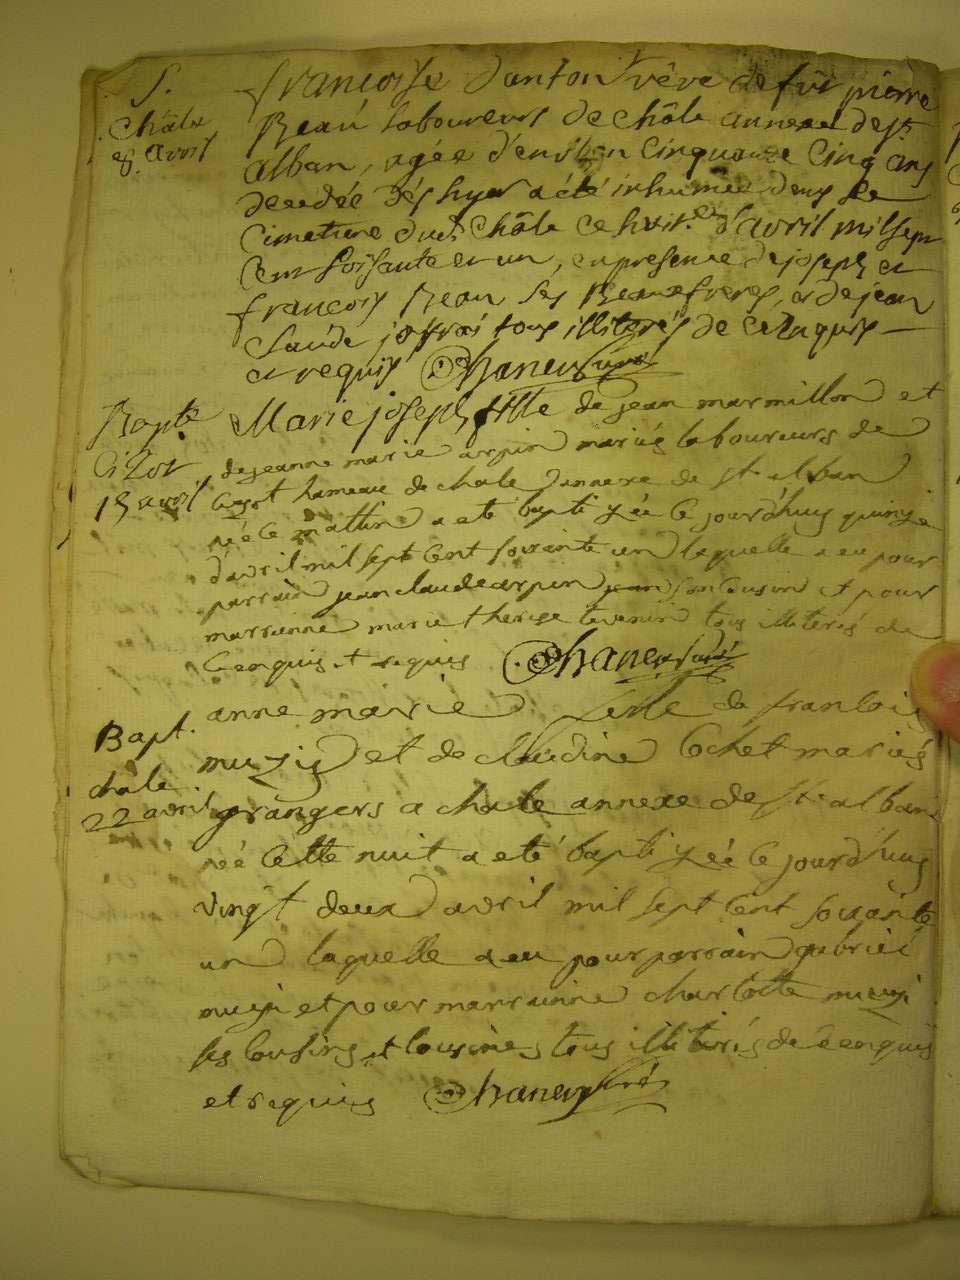 S.
Châle
8. avril
françoise danton vêve de fût pierre
Beau laboureurs de châle annexe de st
alban, agée d'environ cinquante cinq ans
decedée dés hyer a été inhumée dans le
cimetiere dud. châle ce huit.e d'avril mil sept
cent soisante et un, en presence de joseph et
françois Beau ses Beaufreres, et de jean
claude joffrai tous illiterés de ce enquis
et requis Chanen curé
Bapte
15 avril
Marie joseph fille de jean marmillon et
de jeanne marie arpin mariés laboureurs de
hameau de chale annexe de st alban
née ce mattin a eté baptizéé ce jourdhuy quinze
d'avril mil sept cent soixante un laquelle a eu pour
parrain jean claude arpin son cousin et pour
marrainne marie therese tous illiterés de
ce enquis et requis Chanen curé
Bapt.
châle
22 avril
anne marie fille de francois
muzis et de claudine Cochet mariés
grangers a chale annexe de st alban
néé cette nuit a eté baptizéé ce jourdhuy
vingt deux avril mil sept cent soixante
un laquelle a eu pour parrain gabriel
muzi et pour marrainne charlotte muzi
ses cousins et cousines tous illiterés de ce enquis
et requis Chanen curé